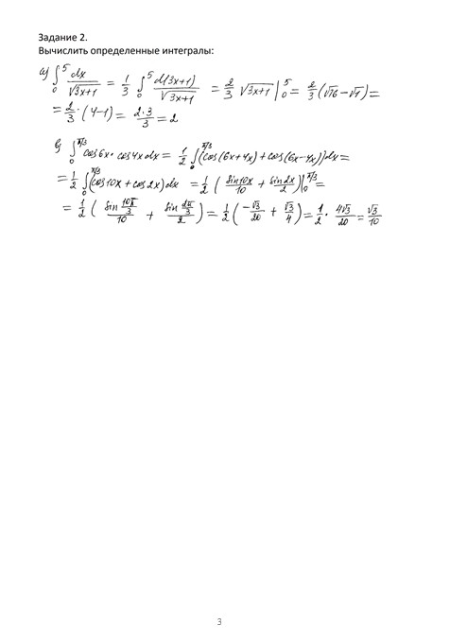 Задание 2.
Вычислить определенные интегралы:
а) ∫₀⁵ dx/√(3x+1) = 1/3 ∫₀⁵ d(3x+1)/√(3x+1) = 2/3 √(3x+1) |₀⁵ = 2/3 (√16 − √1) =
= 2/3 · (4−1) = 2·3/3 = 2
в) ∫₀^(π/3) cos6x · cos4x dx = 1/2 ∫₀^(π/3) (cos(6x+4x) + cos(6x−4x)) dx =
= 1/2 ∫₀^(π/3) (cos10x + cos2x) dx = 1/2 (sin10x/10 + sin2x/2) |₀^(π/3) =
= 1/2 (sin(10π/3)/10 + sin(2π/3)/2) = 1/2 (−√3/20 + √3/4) = 1/2 · 4√3/20 = √3/10
3